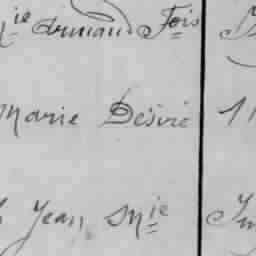 ie Armand Fois
Marie Désiré
Jean Mie